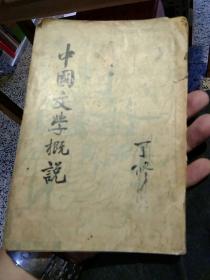 中國文學概說
丁修